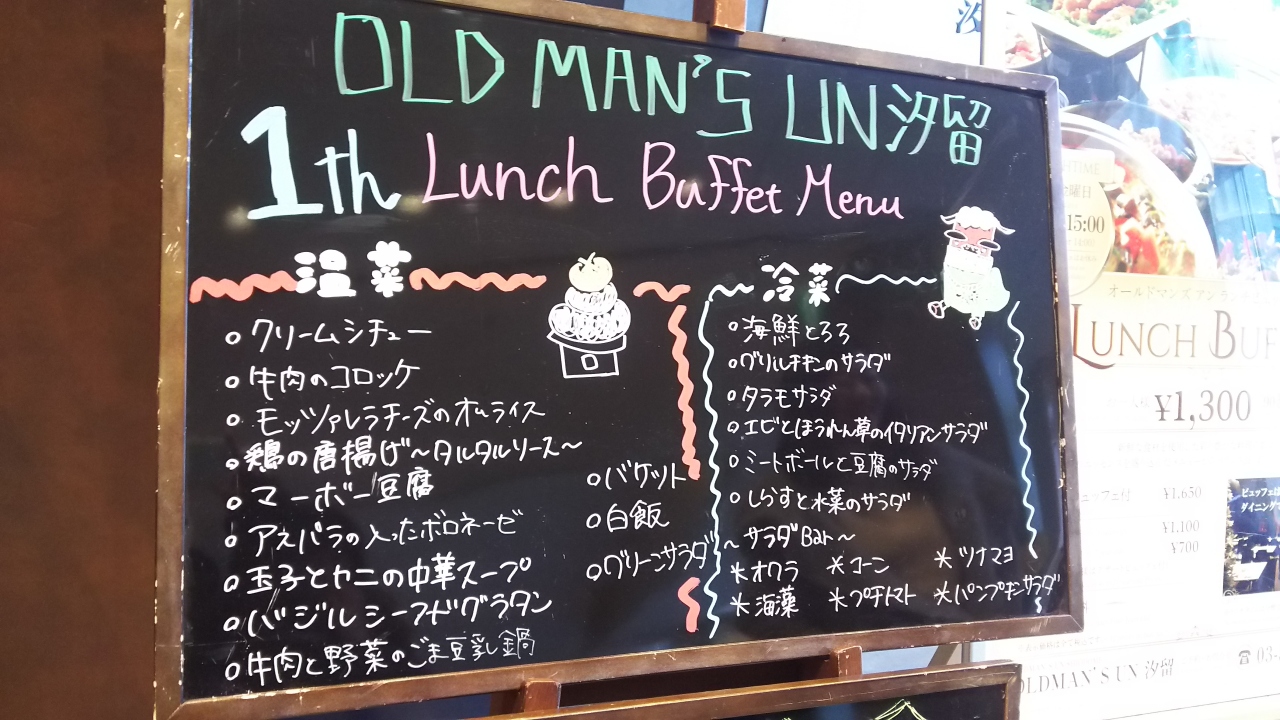 OLD MAN'S UN 汐留
1th Lunch Buffet Menu
温菜
○クリームシチュー
○牛肉のコロッケ
○モッツァレラチーズのオムライス
○鶏の唐揚げ〜タルタルソース〜
○マーボー豆腐
○アスパラの入ったボロネーゼ
○玉子とカニの中華スープ
○バジルシーフードグラタン
○牛肉と野菜のごま豆乳鍋
○バケット
○白飯
○グリーンサラダ
冷菜
○海鮮とろろ
○グリルチキンのサラダ
○タラモサラダ
○エビとほうれん草のイタリアンサラダ
○ミートボールと豆腐のサラダ
○しらすと水菜のサラダ
〜サラダBar〜
*オクラ *コーン *ツナマヨ
*海藻 *プチトマト *パンプキンサラダ
汐
15:00
オールドマンズ アン
LUNCH BUF
¥1,300
¥1,650
¥1,100
¥700
ビュッフェは
ダイニング
OLDMAN'S UN 汐留
☎ 03-